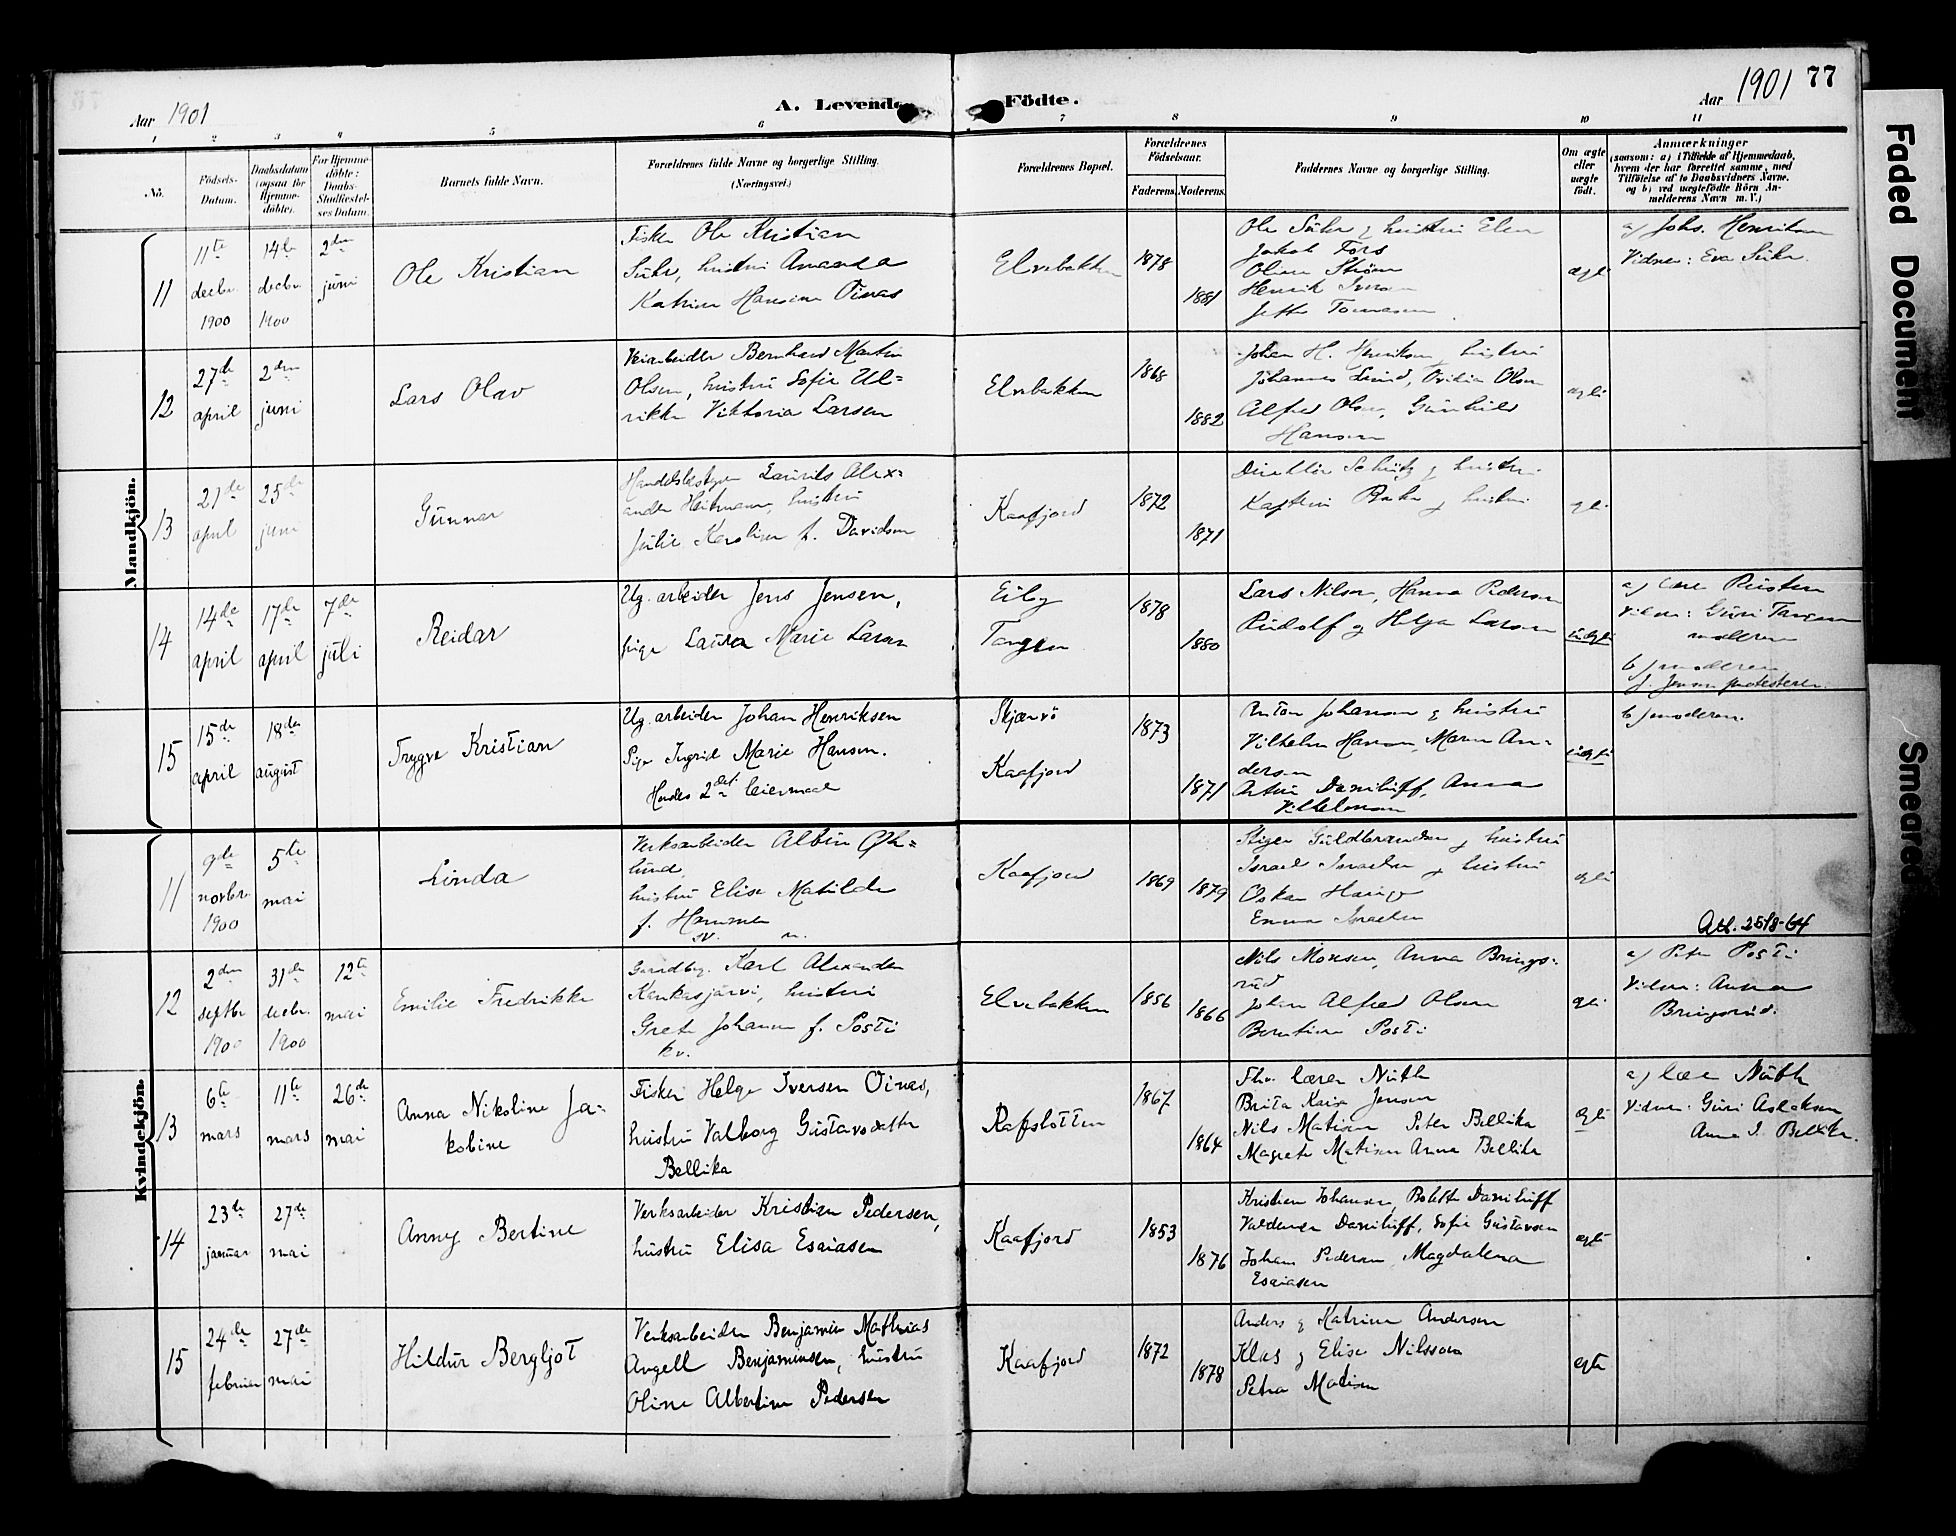 Aar 1901
A. Levende Födte.
Aar 1901 77
Faded Document
Smeared
1 2 3 4 5 6 7 8 9 10 11
No.
Födsels-Datum.
Daabsdatum (ogsaa for Hjemmedöbte).
For Hjemmedöbte: Daabs-Stadfæstelses Datum.
Barnets fulde Navn.
Forældrenes fulde Navne og borgerlige Stilling.
(Næringsvei.)
Forældrenes Bopæl.
Forældrenes Födselsaar.
Faderens. Moderens.
Faddernes Navne og borgerlige Stilling.
Om ægte eller uægte födt.
Anmærkninger
(saasom: a) i Tilfælde af Hjemmedaab,
hvem der har forrettet samme, med
Tilföielse af to Daabsvidners Navne,
og b) ved uægtefödte Börn An-
melderens Navn m. V.)
Mandkjön.
11
11te decbr. 1900
14de decbr. 1900
2den juni
Ole Kristian
Fisker Ole Kristian
Suhr, hustru Amanda
Katrine Hansine Oinas
Elvebakken
1878
1881
Ole Suhr og hustru Elen
Jakob Fors
Oline Strøm
Henrik
ægte
a) Johs. Henriksen
Vidner: Eva Suhr.
12
27de april
2den juni
Lars Olav
Veiarbeider Bernhard Martin
Olsen, hustru Sofie Ul=
rikke Viktoria Larsen
Elvebakken
1868
1882
Johan H. Henriksen, hustru
Johannes Lund, Olsen
Alfred Olsen, Gunhild
Hansen
ægte
13
21de april
25de juni
Gunnar
Handelsbestyrer Laurits Alex=
ander Heitmann, hustru
Julie Karoline f. Davidsen
Kaafjord
1872
1871
Direktør Schütz og hustru
Kaptein og hustru
ægte
14
14de april
17de april
7de juli
Reidar
Ug. arbeider Jens Jensen,
pige Laura Marie Larsen
Eiby
Tangen
1878
1880
Lars Nilsen, Hanna Pedersen
Rudolf og Helga Larsen
uægte
a)
Vidner: Guri
moderen
b) moderen
15
15de april
18de august
Trygve Kristian
Ug. arbeider Johan Henriksen
Pige Ingrid Marie Hansen.
Hendes 2det leiermaal
Skjærvø
Kaafjord
1873
1871
Anton Johansen og hustru
Vilhelm Hansen, Maren An=
dersen
Artur Daniluff, Anna
Vilhelmsen
uægte
b) moderen.
Kvindekjön.
11
9de novbr. 1900
5te mai
Linda
Verksarbeider Albin Øh=
lund,
hustru Elise Matilde
f. Hammer
sv. n.
Kaafjord
1869 1879
Stiger Guldbrandsen og hustru
Israel Israelsen og hustru
Oskar
Emma Israelsen
ægte
Att. 2518-64
12
2den septbr 1900
31de decbr. 1900
12te mai
Emilie Fredrikke
Gaardbr. Karl Alexander
Kenkasjärvi, hustru
Grete Johanne f. Posti
kv.
Elvebakken
1856
1866
Nils Monsen, Anna Brings=
rud
Johan Alfred Olsen
Berntine Posti
ægte
a) Peter Posti
Vidner: Anna
Bringsrud.
13
6te mars
11te mars
26de mai
Anna Nikoline Ja=
kobine
Fisker Helge Iversen Oinas,
hustru Valborg Gustavsdatter
Bellika
Rafsbotten
1867
1864
Fhv. lærer Nuth
Brita Kaisa Jensen
Nils Matisen Peter Bellika
Magrete Matisen Anna Bellika
ægte
a) lær Nuth
Vidner: Guri Aslaksen
Anna I. Bellika.
14
23de januar
27de mai
Anny Bertine
Verksarbeider Kristian Pedersen,
hustru Elisa Esaiasen
Kaafjord
1853
1876
Kristian Johansen, Bolette Daniluff
Valdemar Daniluff, Sofie Gustavsen
Johan Pedersen, Magdalena
Esaiasen
ægte
15
24de februar
27de mai
Hildur Bergljot
Verksarbeider Benjamin Mathias
Angell Benjaminsen, hustru
Oline Albertine Pedersen
Kaafjord
1872
1878
Anders og Katrine Andersen
Klas og Elise Nilsson
Petra Matisen
ægte